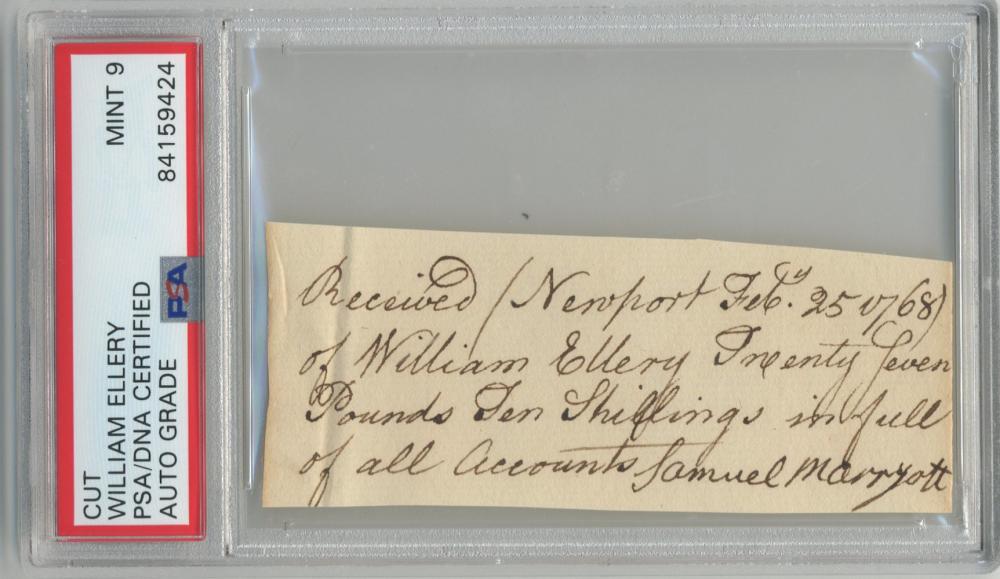 CUT
WILLIAM ELLERY
PSA/DNA CERTIFIED
AUTO GRADE
MINT 9
84159424
PSA
Received (Newport Feb.y 25 1768)
of William Ellery Twenty Seven
Pounds Ten Shillings in full
of all Accounts Samuel Marryott